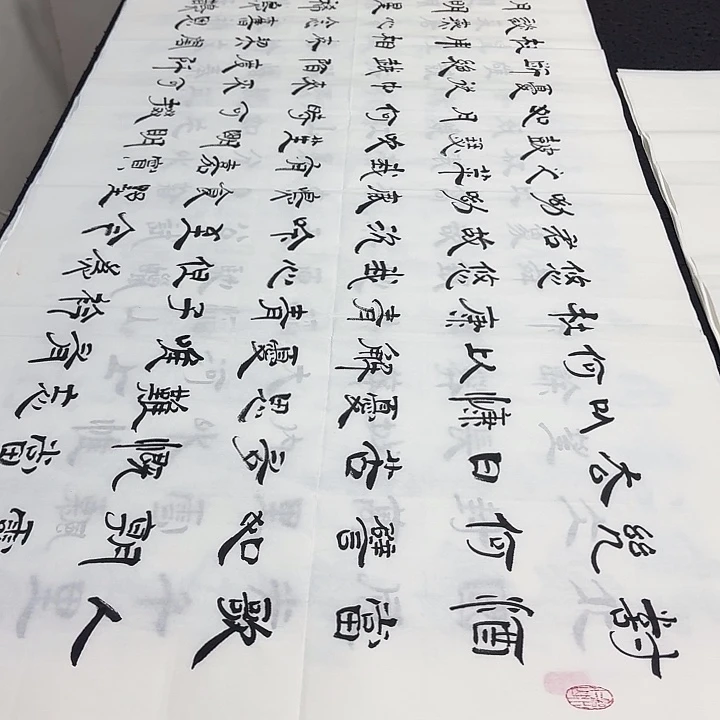 對酒當歌人
幾何譬如朝露
去日苦多慨當
以慷憂思難忘
何以解憂唯有
杜康青青子衿
悠悠我心但為
君故沉吟至今
呦呦鹿鳴食野
之苹我有嘉賓
鼓瑟吹笙明明
如月何時可掇
憂從中來不可
斷絕越陌度阡
枉用相存契闊
談讌心念舊恩
月明星